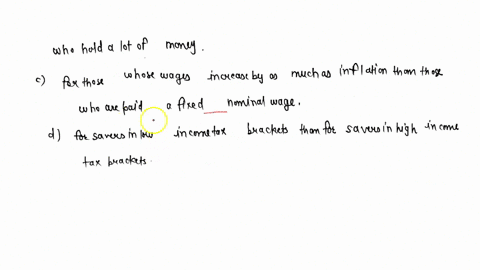 who hold a lot of money.
c) for those whose wages increase by as much as inflation than those
who are paid a fixed nominal wage.
d) for savers in low income tax brackets than for savers in high income
tax brackets.